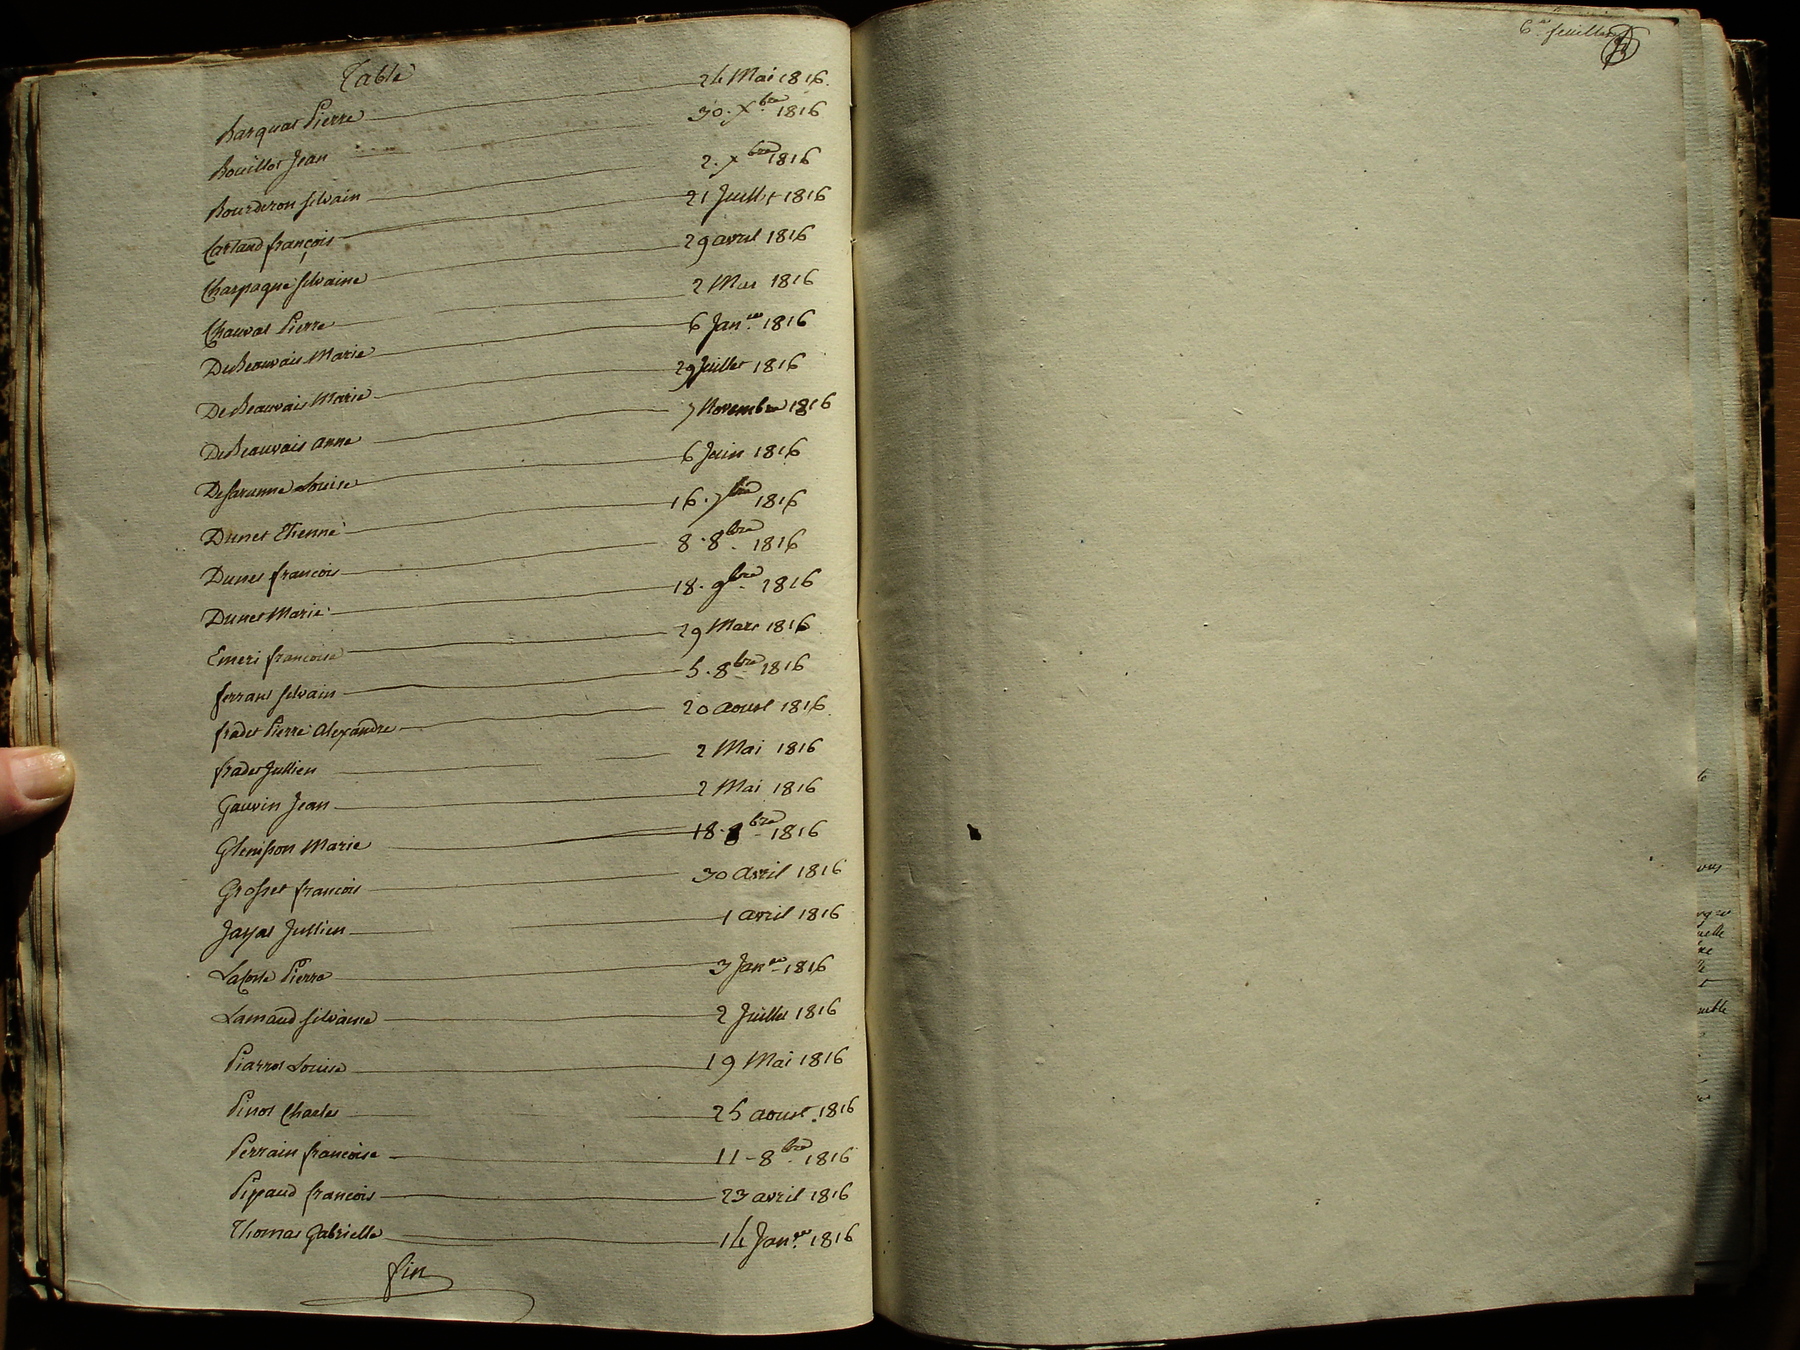 Table
Barquat Pierre 24 Mai 1816.
Bouillot Jean 30. Xbre 1816
Bourderon silvain 2. xbre 1816
Cartaud françois 21 Juillet 1816
Charpagne silvaine 29 avril 1816
Chauvat Pierre 2 Mars 1816
DeBeauvais Marie 6 Janer 1816
DeBeauvais Marie 29 Juillet 1816
DeBeauvais anne 7 Novembre 1816
Louise 6 Juin 1816
Dunet Etienne 16. 7bre 1816
Dunet francois 8. 8bre 1816
Dunet Marie 18. 9bre 1816
Emeri francoise 29 Mars 1816
ferrand silvain 5. 8bre 1816
fradet Pierre Alexandre 20 aoust 1816
fradet Jullien 2 Mai 1816
Gauvin Jean 2 Mai 1816
Glenisson Marie 18. 8bre 1816
Grosset francois 30 avril 1816
Jayat Jullien 1 avril 1816
Lacoste Pierre 3 Janer 1816
Lamaud silvaine 2 Juillet 1816
Piarrot Louise 19 Mai 1816
Pinot Charles 25 aoust. 1816
Perrain francoise 11-8bre 1816
Pipaud francois 23 avril 1816
Thomas Gabrielle 14 Janer 1816
fin
6me feuillet